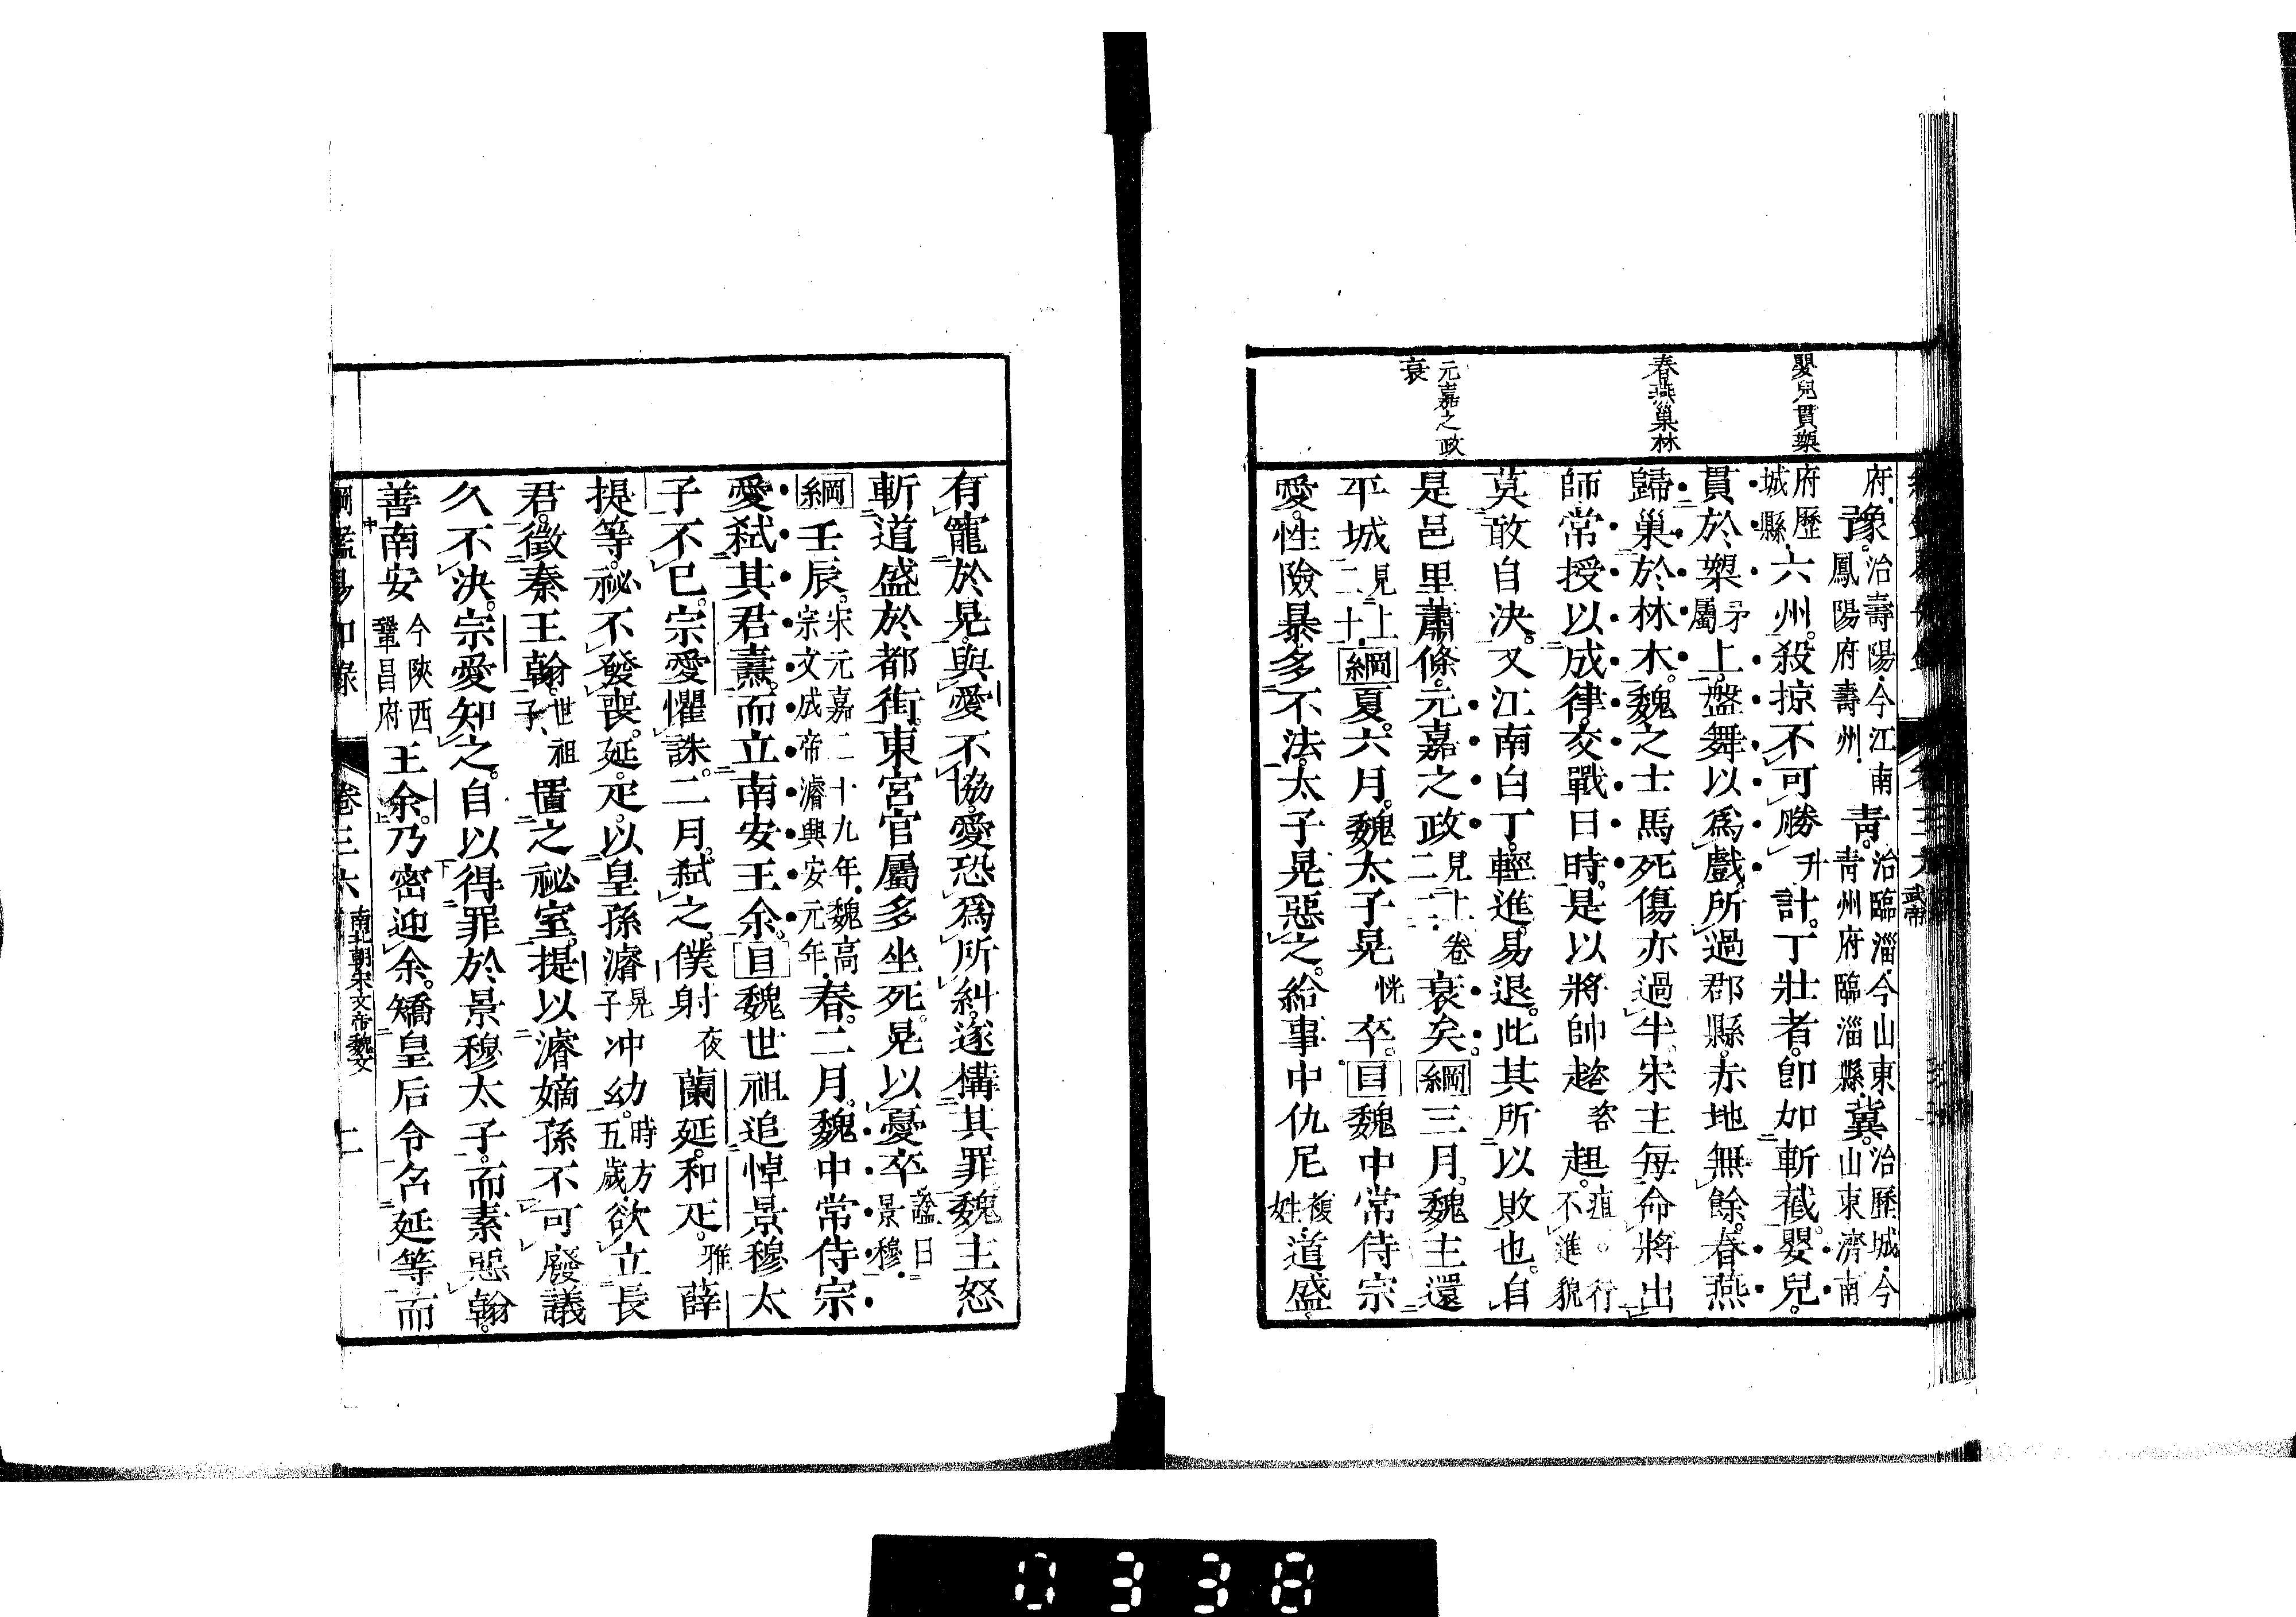 嬰兒貫槊
春燕巢林
元嘉之政
衰
府豫。治壽陽今江南鳳陽府壽州青。治臨淄今山東青州府臨淄縣冀。治歷城今山東濟南
府歷城縣六州。殺掠不可勝升計。丁壯者。卽加斬截。嬰兒。
貫於槊矛屬上。盤舞以爲戲。所過郡縣。赤地無餘。春燕
歸巢於林木。魏之士馬死傷亦過半。宋主每命將出
師。常授以成律。交戰日時。是以將帥趑咨趄。疽。行不進貌
莫敢自決。又江南白丁。輕進易退。此其所以敗也。自
是邑里蕭條。元嘉之政見上卷二二衰矣。綱三月。魏主還
平城見上二十綱夏。六月。魏太子晃恍卒。目魏中常侍宗
愛。性險暴多不法。太子晃惡之。給事中仇尼複姓道盛。
有寵於晃。與愛不協。愛恐爲所糾。遂構其罪魏主怒
斬道盛於都街。東宮官屬多坐死。晃以憂卒諡曰景穆
綱壬辰。宋元嘉二十九年魏高宗文成帝濬興安元年春。二月。魏中常侍宗
愛弒其君燾。而立南安王余。目魏世祖追悼景穆太
子不已。宗愛懼誅。二月。弒之。僕射夜蘭延。和疋。雅薛
提等。祕不發喪。延。疋。以皇孫濬晃子冲幼。時方五歲欲立長
君。徵秦王翰。世祖子置之祕室。提以濬嫡孫不可廢議
久不決。宗愛知之。自以得罪於景穆太子。而素惡翰。
善南安今陝西鞏昌府王余。乃密迎余。矯皇后令召延等。而
綱鑑易知錄 卷三六 南北朝宋文帝魏文